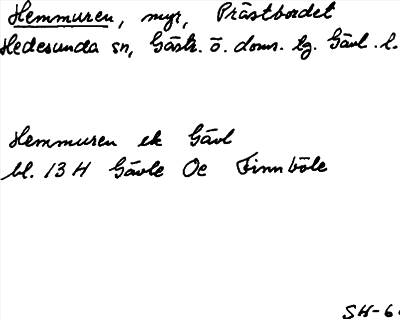 Hemmuren, myr, Prästbordet
Hedesunda sn, Gästr. ö. doms. tg. Gävl. l.
Hemmuren ek Gävl
bl. 13 H Gävle Oe Finnböle
SH-6